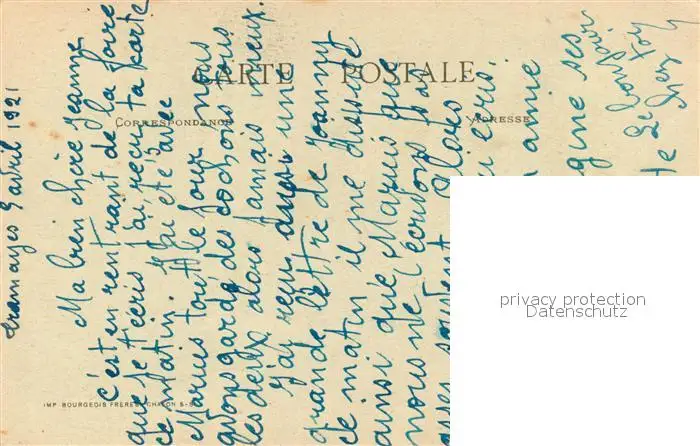 CARTE POSTALE
CORRESPONDANCE
ADRESSE
Tramayes 9 avril 1921
Ma bien chère Jeanne
c'est en rentrant de la foire
que je t'écris j'ai reçu ta carte
ce matin. J'ai été avec
Marius tout le jour nous
avons garde des cochons nous
les deux alors jamais mieux.
J'ai reçu aussi une
grande lettre de Joanny
ce matin il me dispute
ainsi que Marius que
nous ne l'écrivons pas
assez souvent Alors
écris.
amie
ses
IMP. BOURGEOIS FRÈRES CHALON S-S
privacy protection
Datenschutz